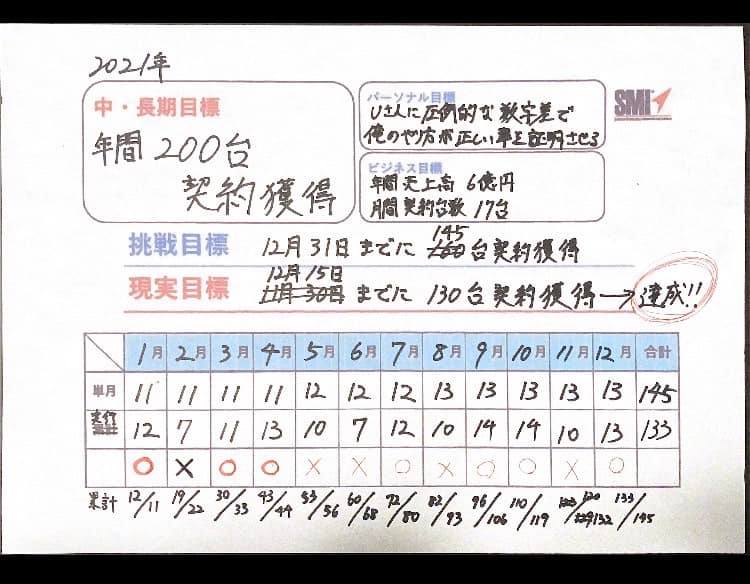 2021年
中・長期目標
年間 200台
契約獲得
パーソナル目標
Uさんに圧倒的な数字差で
俺のやり方が正しい事を証明させる
SMI
ビジネス目標
年間売上高 6億円
月間契約台数 17台
145
挑戦目標 12月31日までに 160台契約獲得
12月15日
現実目標 11月30日までに 130台契約獲得→達成!!
1月 2月 3月 4月 5月 6月 7月 8月 9月 10月 11月 12月 合計
単月 11 11 11 11 12 12 12 13 13 13 13 13 145
実行 12 7 11 13 10 7 12 10 14 14 10 13 133
○ × ○ ○ × × ○ × ○ ○ × ○
累計 12/11 19/22 30/33 43/44 53/56 60/68 72/80 82/93 96/106 110/119 120/132 133/145